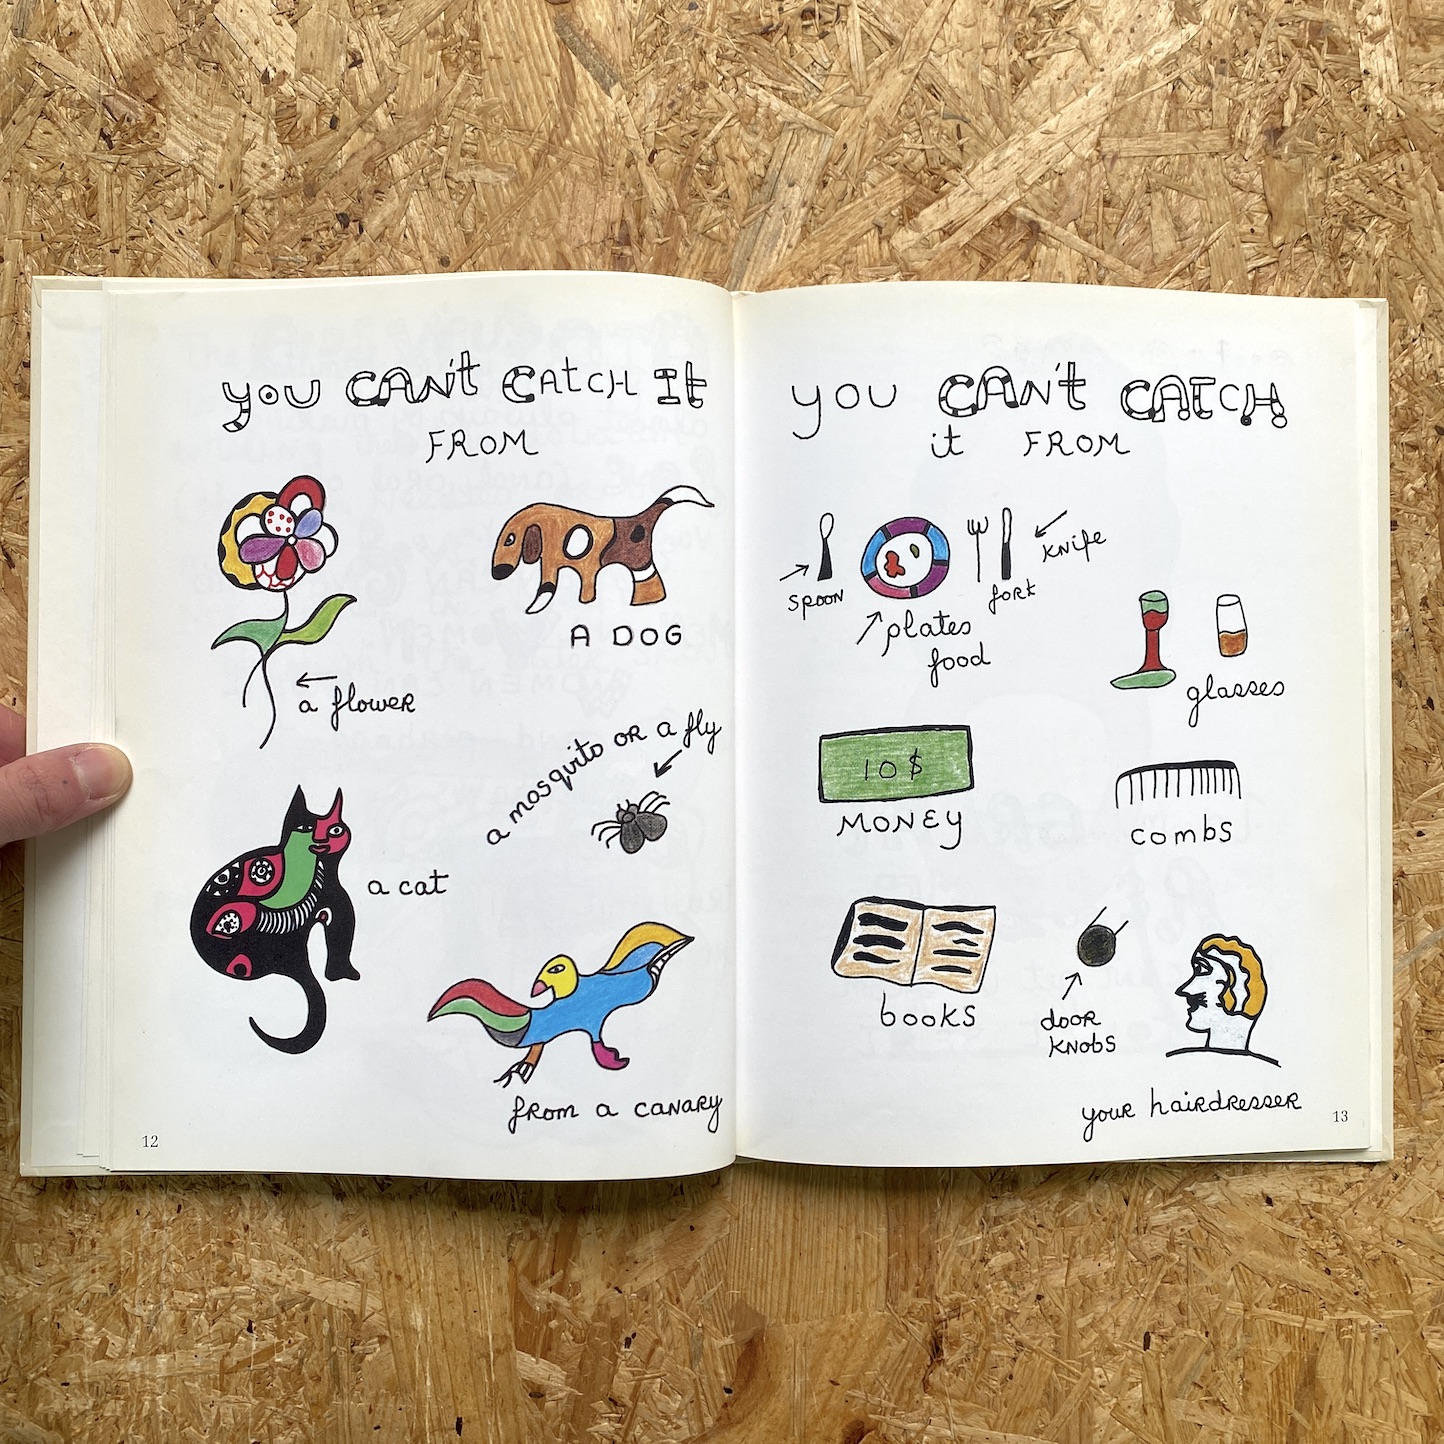 you CAN't CAtCH It
FROM
a flower
A DOG
a mosquito OR a fly
a cat
from a canary
12
you CAN't CATCH
it FROM
spoon
plates
food
fork
knife
glasses
10$
MONEY
combs
books
door
knobs
your hairdresser
13